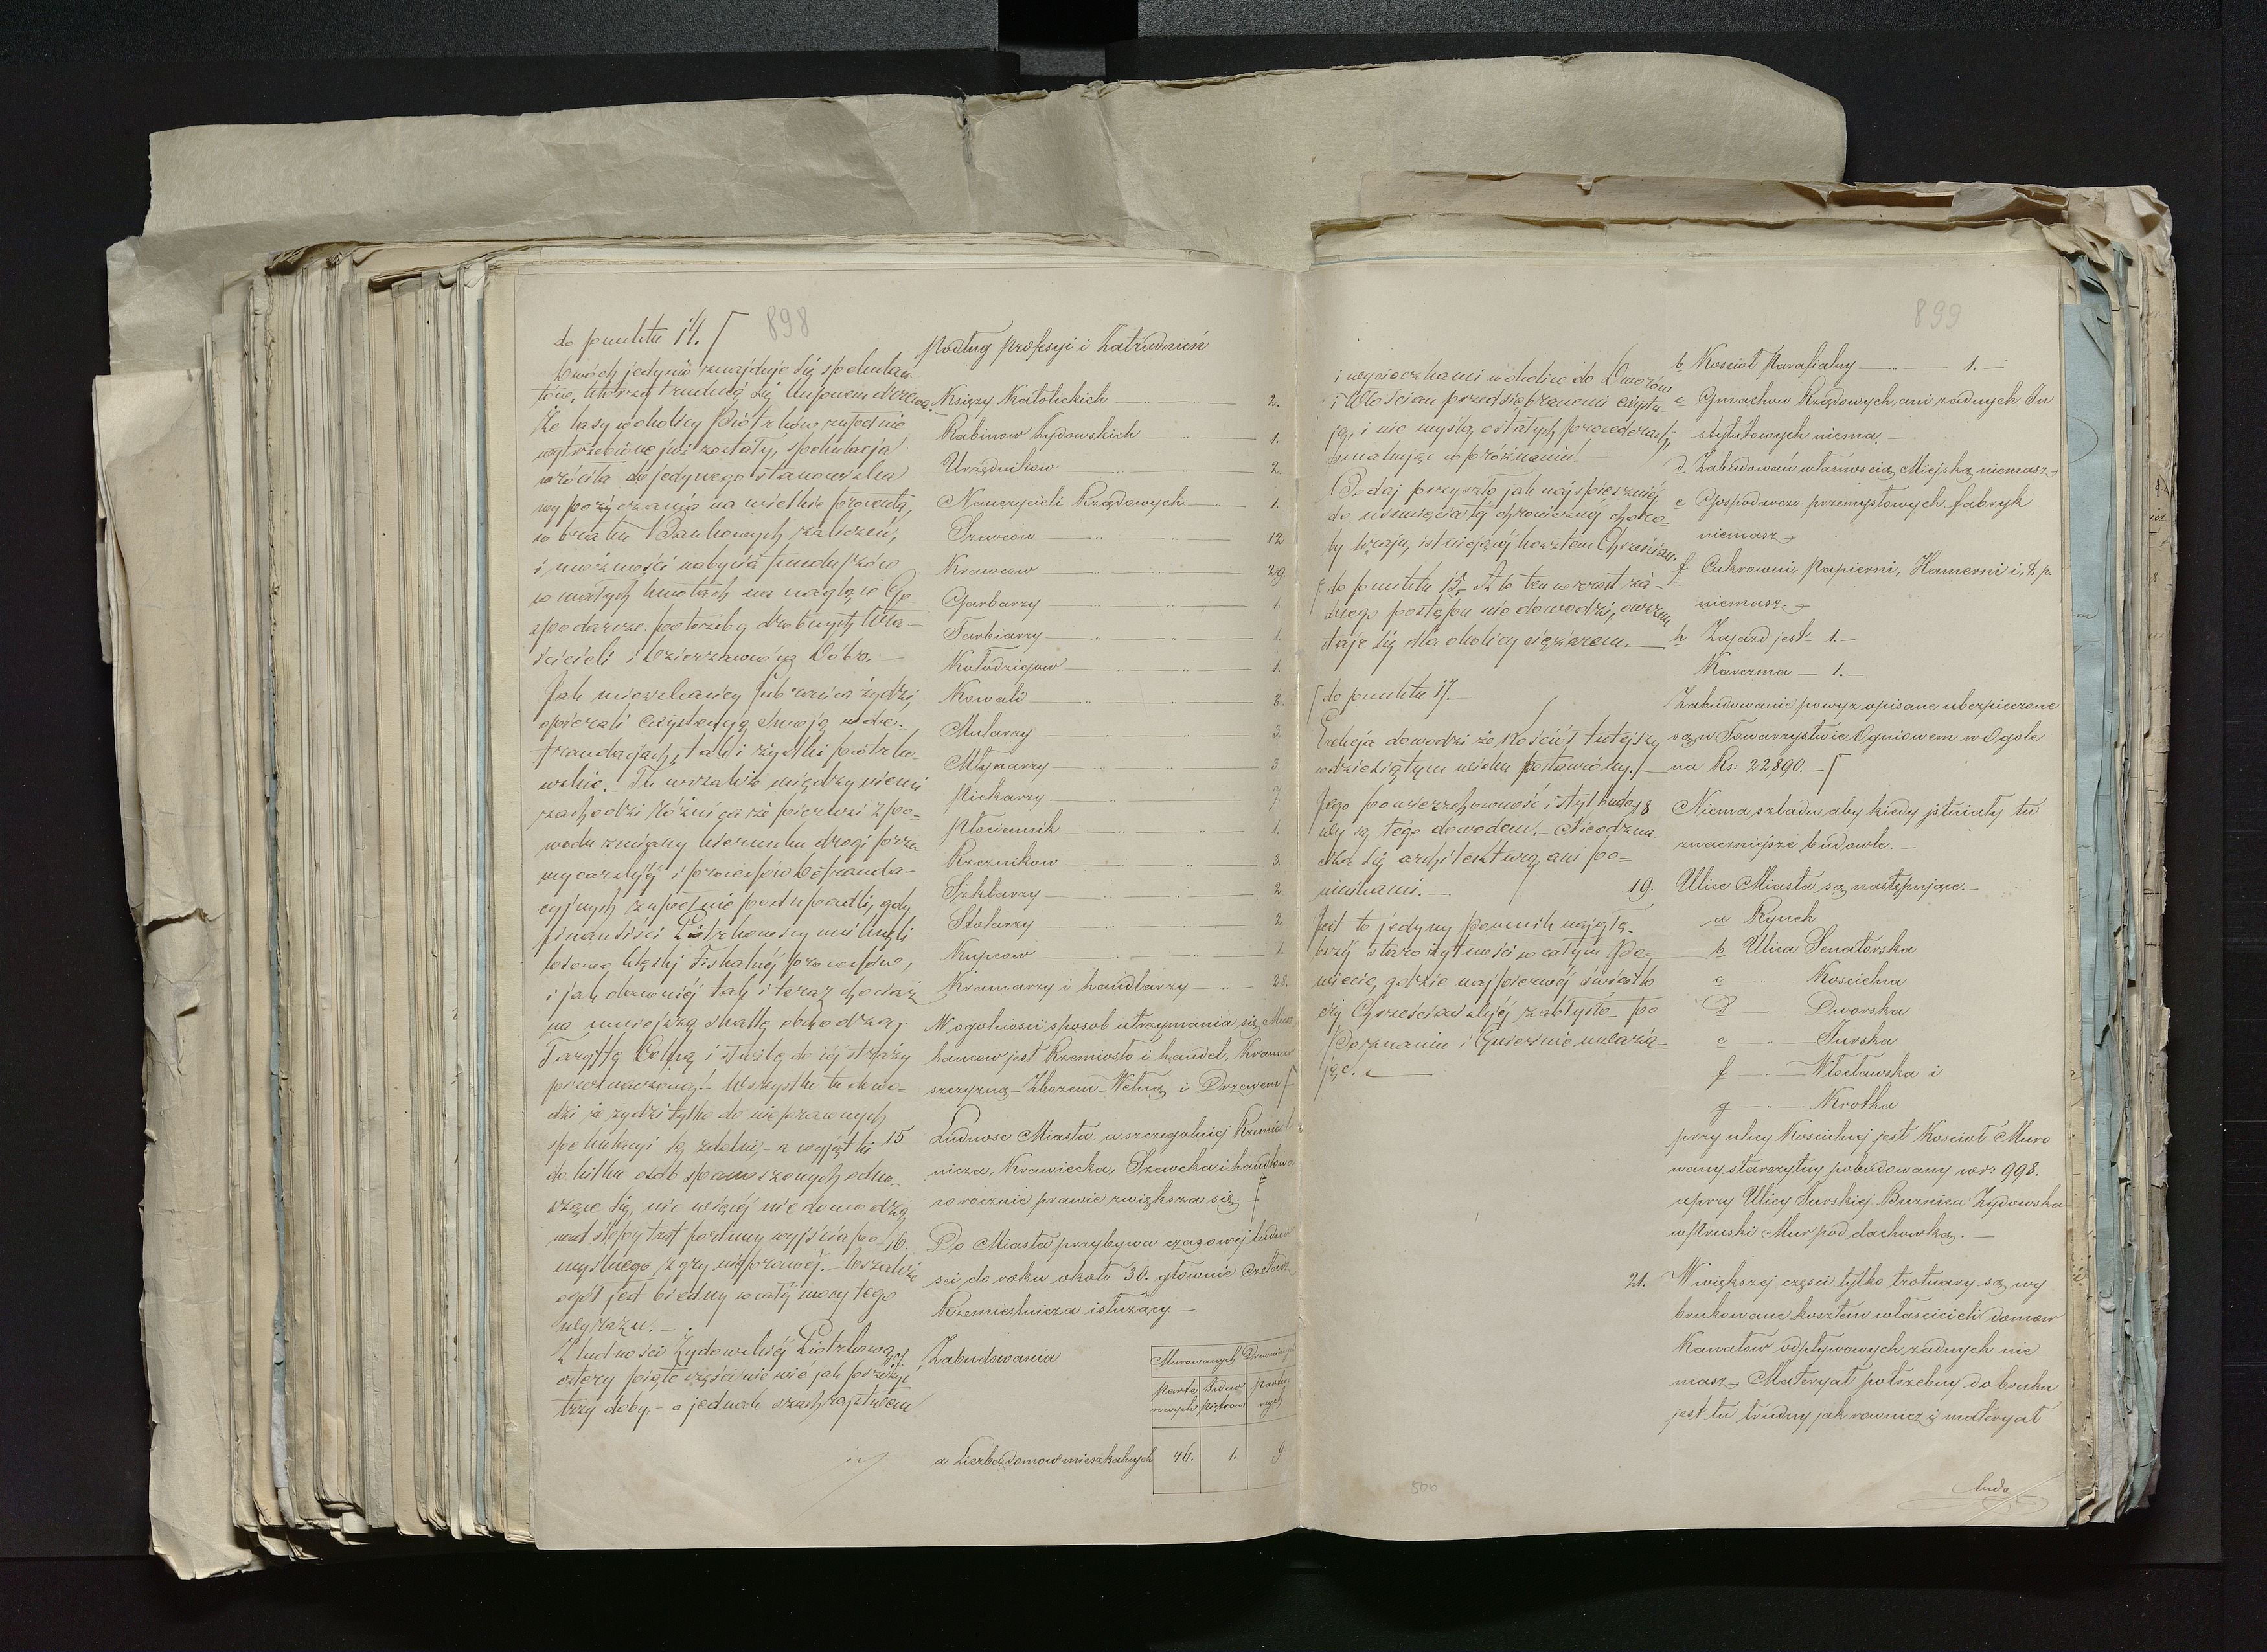 898
do punktu 14.
Dwóch jedynie znajduje się spekulan-
tów, którzy trudnią się kupnem drzewa.
Że lasy w okolicy Piotrkowa zupełnie
wytrzebione już zostały, spekulacja
wróciła do jedynego stanowiska
wypożyczania na wielkie procenta,
w braku Bankowych zaliczeń,
i możności nabycia funduszów
w małych kwotach na nagłe i Go
spodarcze potrzeby drobnych Wła-
ścicieli i Dzierżawców Dóbr.
Jak mieszkańcy Lubrańca żydzi,
opierali egzystencją swoją na de-
fraudacjach, tak i żydki piotrko-
wskie. Tu wszakże między niemi
zachodzi różnica że pierwsi z po=
wodu zmiany kierunku drogi prze
mycarskiéj i procesów defrauda-
cyjnych zupełnie podupadli, gdy
finansiści Piotrkowscy uniknęli
losową klęski Fiskalnéj procesów,
i jak dawniéj tak i teraz chociaż
na mniejszą skallę obchodzą
Taryffę Celną i służbę do jéj straży
przeznaczoną. Wszystko to dowo-
dzi że żydzi tylko do nieprawnych
spekulacyi są zdolni, a wyjątki
do kilku osób spanoszonych odno-
szące się, nic więcéj nie dowodzą
nad ślepy traf fortuny wyjścia po
myślnego z gry nieprawéj. Wszakże
ogół jest biedny w całéj mocy tego
wyrazu.
Z ludności Żydowskiéj Piotrkowa
cztery piąte części nie wie jak przeżyć
trzy doby, a jednak szachrajstwem
podług profesyi i Zatrudnień
Księży Katolickich 2.
Rabinow Żydowskich 1.
Urzędnikow 2
Nauczycieli Rządowych 1.
Szewcow 12
Krawcow 29.
Garbarzy 1.
Farbiarzy 1.
Kołodziejow 1.
Kowali 2.
Mularzy 3.
Młynarzy 3.
Piekarzy 7
Płóciennik 1.
Rzeznikow 3.
Szklarzy 2
Stolarzy 2
Kupcow 1.
Kramarzy i handlarzy 28.
W ogolnosci sposob utrzymania się Miesz
kancow jest Rzemiosło i handel, Kramar
szczyzną - Zbożem - Wełną i Drzewem
15 Ludnosc Miasta a szczegolniej Rzemieśl
nicza, Krawiecka, Szewcka i handlowa
co rocznie prawie zwiększa się.
16. Do Miasta przybywa czasowej ludno
sci do roku około 30. głownie Czeladz
Rzemieslnicza i służący
Zabudowania
Murowanych Drewnianych
Parte rowych Jedno Piętrow Parter owych
a Liczba domow mieszkalnych 46. 1. 9
899
i wycieczkami w okolice do Dworów
i Włościan przedsiębranemi egzystu-
ją, i nie myślą o stałych procederach,
gmatwając w próżnowaniu.
Podaj przyszło jak najśpieszniéj
do usunięcia téj chronicznéj choro=
by kraju, istniejącéj kosztem Chrześcian.
do punktu 15. A to ten wzrost ża-
dnego postępu nie dowodzi, owszem
staje się dla okolicy ciężarem.
do punktu 17.
Erekcja dowodzi że Kościół tutejszy
w dziesiątym wieku postawiony.
Jego powierzchowność i styl budo
wy są tego dowodem. Nie odzna-
cza się architekturą, ani po=
mnikami.
Jest to jedyny pomnik najgłę-
bszéj starożytności w całym Po-
wiecie, gdzie najpierwéj światło
ery Chrześciańskiéj zabłysło po
Poznaniu i Gnieznie
b Koscioł Parafialny 1.
c Gmachow Rządowych, ani żadnych In
stytutowych niema.
d Zabudowań własnoscią Miejską niemasz
e Gospodarczo przemysłowych fabryk
niemasz
f Cukrowni, Papierni, Hamerni i, t. p.
niemasz.
h Zajazd jest 1.
Karczma 1.
Zabudowanie powyz opisane ubezpieczone
są w Towarzystwie Ogniowem w Ogole
na Rs: 22,890.
18 Niema szladu aby kiedy istniały tu
znaczniejsze budowle.
19. Ulice Miasta są następujące.
a Rynek
b Ulica Senatorska
c " Koscielna
D Dworska
e " Turska
f " Włocławska i
g " Krotka
przy ulicy Koscielnej jest Kosciół Muro
wany starozytny pobudowany w r: 998.
a przy Ulicy Turskiej Buznica Żydowska
w Pruski Mur pod dachowką.
21. W większej części tylko trotuary są wy
brukowane kosztem wlascicieli domow
Kanałow odpływowych żadnych nie
masz, Materyał potrzebny do bruku
jest tu trudny jak rowniez i materyał
500